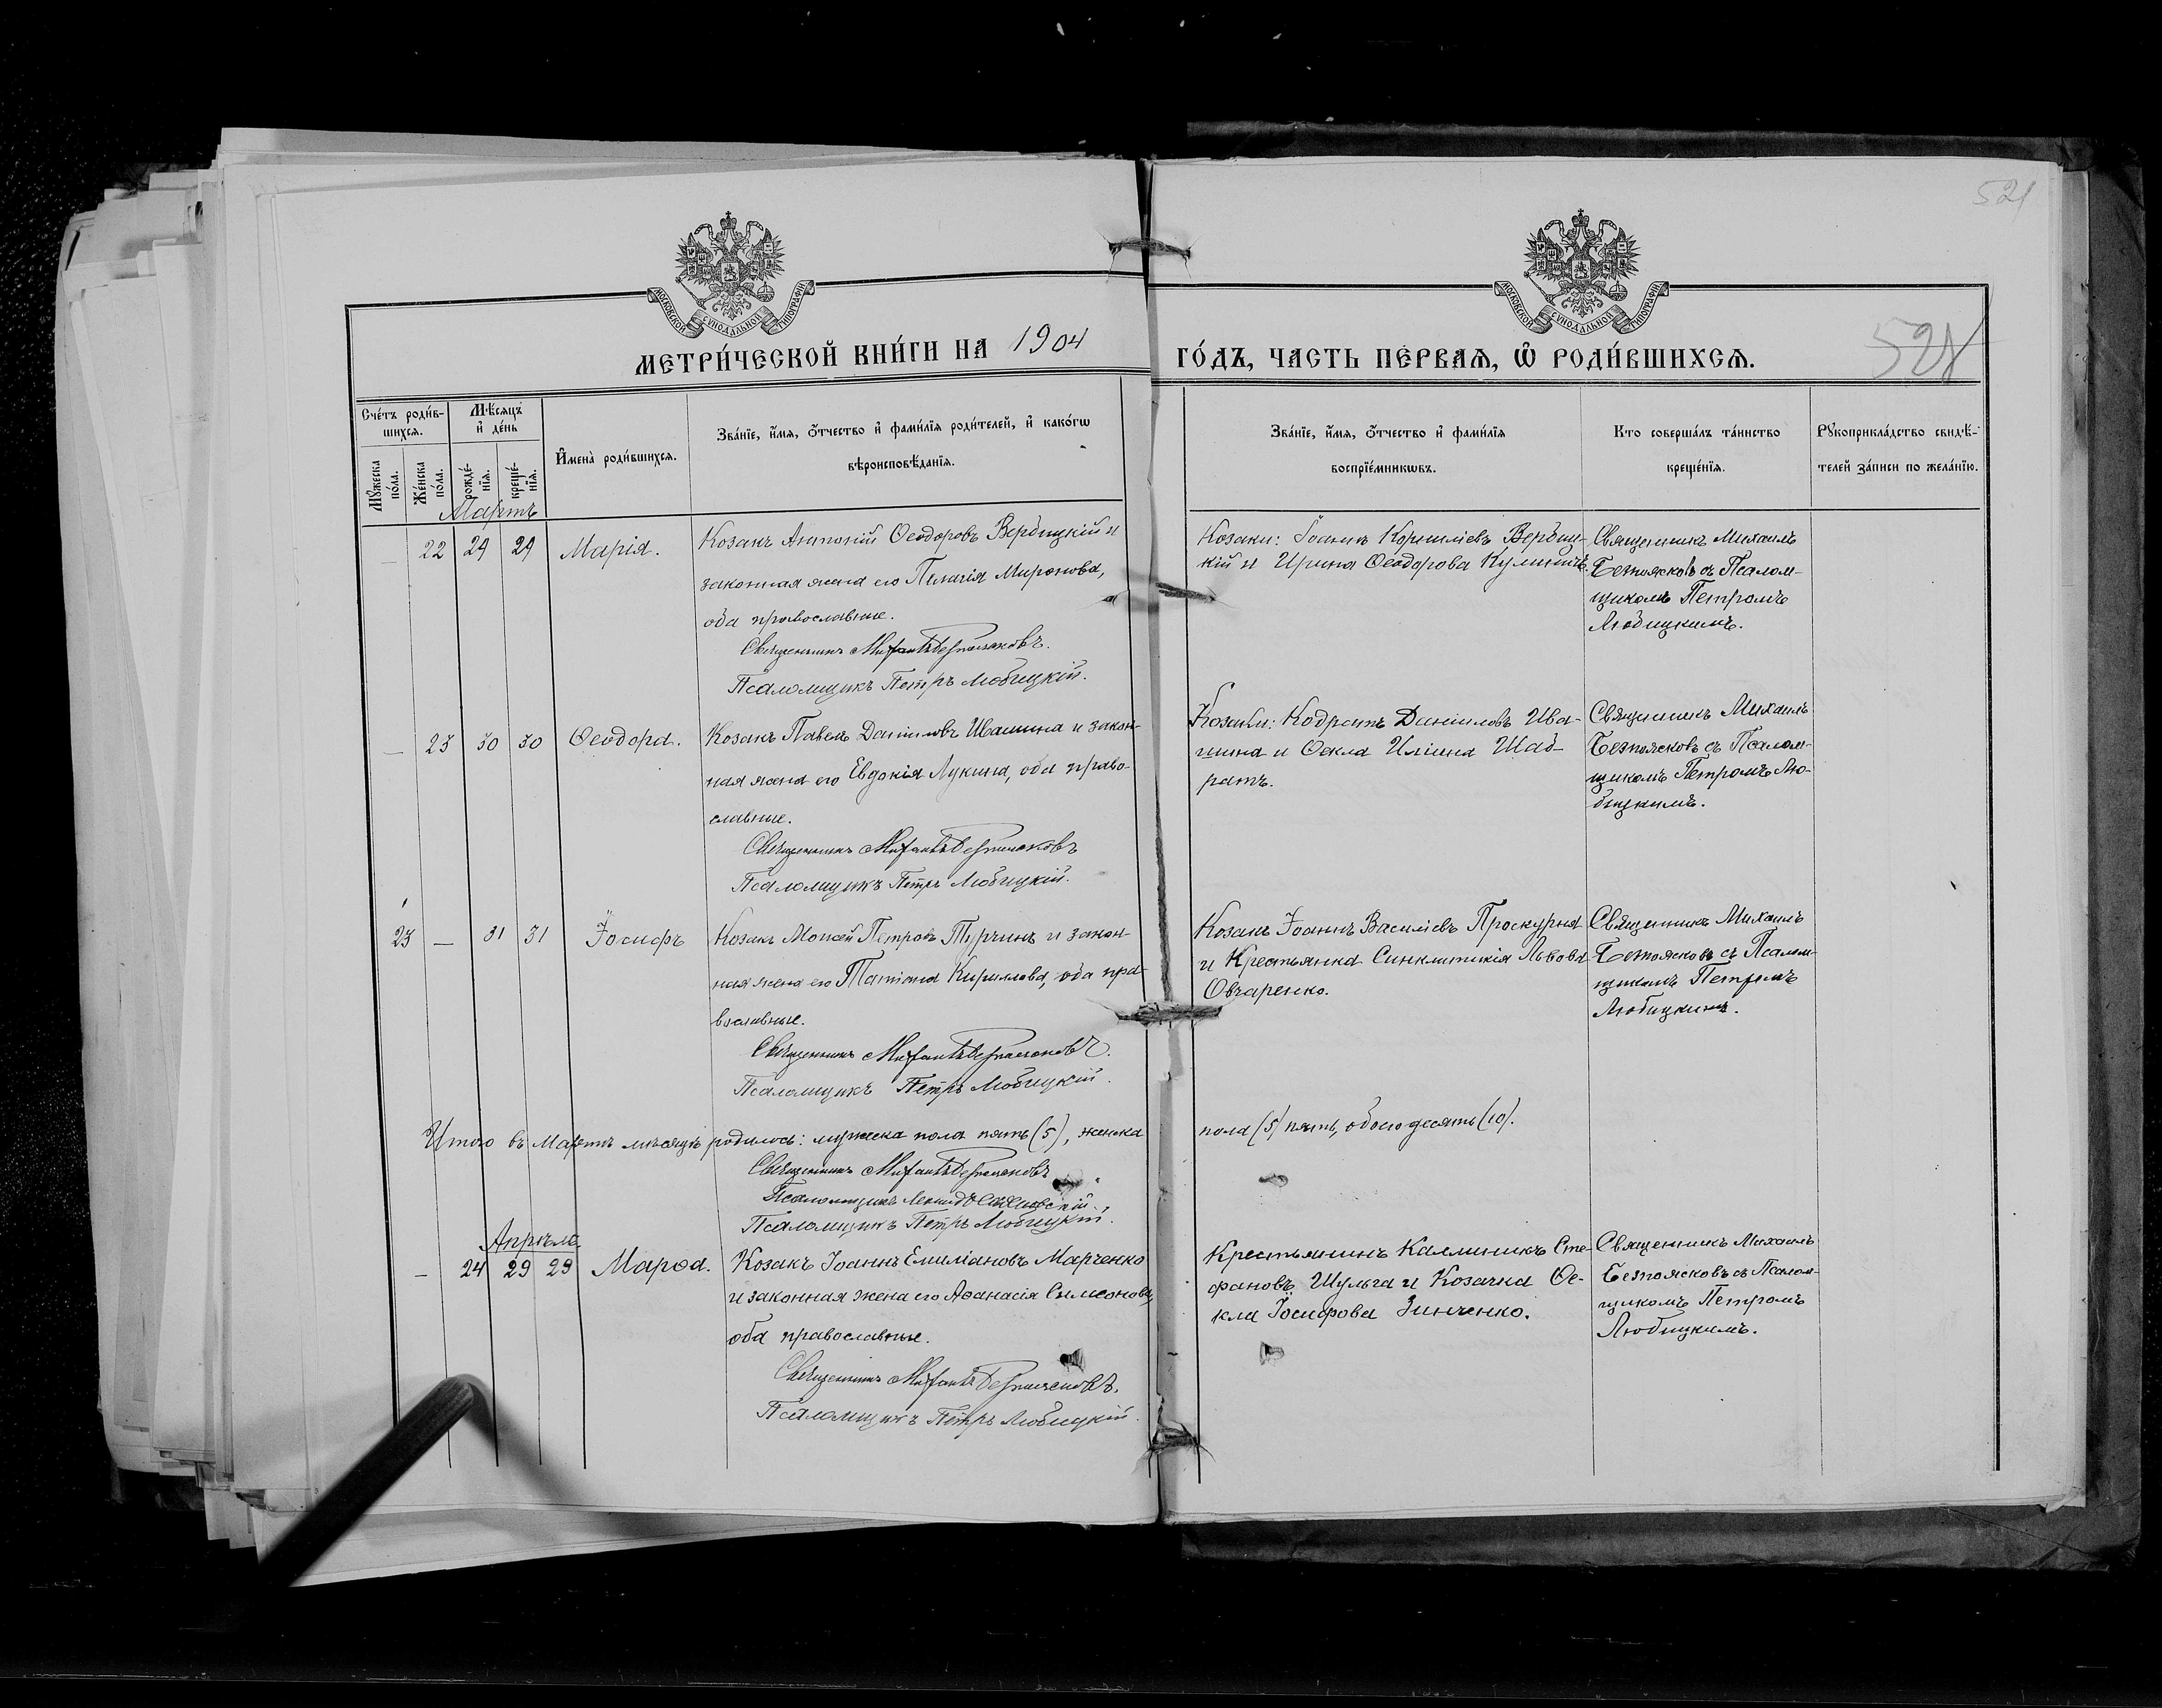 521
МОСКОВСКОЙ СУНОДАЛЬНОЙ ТИПОГРАФІИ
МОСКОВСКОЙ СУНОДАЛЬНОЙ ТИПОГРАФІИ
МЕТРИ́ЧЕСКОЙ КНИ́ГИ НА 1904
ГО́ДЪ, ЧАСТЬ ПЕ́РВАѦ, Ѡ РОДИ́ВШИХСѦ.
Сче́тъ роди́в-
шихсѧ.
Мꙋ́жеска по́ла.
Же́нска по́ла.
Мѣ́сѧцъ и де́нь
рожде́-нїѧ.
креще́-нїѧ.
И҆мена̀ роди́вшихсѧ.
Зва́нїе, и҆́мѧ, ѻ҆́тчество и҆ фами́лїѧ роди́телей, и҆ како́гѡ
вѣроисповѣ́данїѧ.
Зва́нїе, и҆́мѧ, ѻ҆́тчество и҆ фами́лїѧ
воспрїе́мникѡвъ.
Кто соверша́лъ та́инство
креще́нїѧ.
Рꙋкоприкла́дство свидѣ́-
телей за́писи по жела́нїю.
Мартъ
22 29 29 Марія.
Козакъ Антоній Ѳеодоровъ Вербицкій и
законная жена его Пелагія Миронова,
оба православные.
Священникъ Михаилъ Безпоясковъ.
Псаломщикъ Петръ Любицкій.
Козаки: Іоаннъ Корниліевъ Вербиц-
кій и Ирина Ѳеодорова
Священникъ Михаилъ
Безпоясковъ съ Псалом-
щикомъ Петромъ
Любицкимъ.
— 23 30 30 Ѳеодора.
Козакъ Павелъ Даніиловъ Ивашина и закон-
ная жена его Евдокія Лукина, оба право-
славные.
Священникъ Михаилъ Безпоясковъ
Псаломщикъ Петръ Любицкій.
Козаки: Кодратъ Даніиловъ Ива-
шина и Ѳекла Иліина Шаб-
ратъ.
Священникъ Михаилъ
Безпоясковъ съ Псалом-
щикомъ Петромъ Лю-
бицкимъ.
23 — 31 31 Іосифъ
Козакъ Моисей Петровъ Турчинъ и закон-
ная жена его Татіана Кириллова, оба пра-
вославные.
Священникъ Михаилъ Безпоясковъ.
Псаломщикъ Петръ Любицкій.
Козакъ Іоаннъ Василіевъ Проскурня
и Крестьянка Синклитикія Львова
Овчаренко.
Священникъ Михаилъ
Безпоясковъ съ Псалом-
щикомъ Петромъ
Любицкимъ.
Итого въ Мартѣ мѣсяцѣ родилось: мужеска пола пять (5), женска
пола (5) пять, обоего десять (10).
Священникъ Михаилъ Безпоясковъ
Псаломщикъ Леонидъ
Псаломщикъ Петръ Любицкій.
Апрѣль
— 24 29 29 Марѳа.
Козакъ Іоаннъ Емиліановъ Марченко
и законная жена его Аѳанасія Симеонова,
оба православные.
Священникъ Михаилъ Безпоясковъ.
Псаломщикъ Петръ Любицкій.
Крестьянинъ Каллиникъ Сте-
фановъ Шульга и Козачка Ѳе-
кла Іосифова Зинченко.
Священникъ Михаилъ
Безпоясковъ съ Псалом-
щикомъ Петромъ
Любицкимъ.